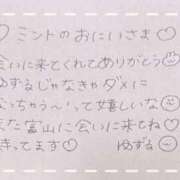 ♡ミントのおにいさま♡
会いに来てくれてありがとう
ゆずるじゃなきゃダメに
なっちゃう〜って嬉しいな
また富山に会いに来てね♡
待ってます♡ ゆずる